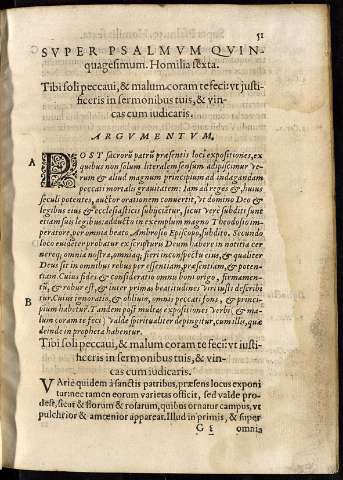 51
SVPER PSALMVM QVIN
quagesimum. Homilia sexta.
Tibi soli peccaui, & malum coram te feci: vt iusti-
ficeris in sermonibus tuis, & vin-
cas cum iudicaris.
ARGVMENTVM.
A
POST sacrorũ patrũ præsentis loci expositiones, ex
quibus non solum literalem sensum adipiscimur ve-
rum & aliud magnum principium ad indagandam
peccati mortalis grauitatem: Iam ad reges & huius
seculi potentes, auctor orationem conuertit, vt domino Deo &
legibus eius & ecclesiasticis subijciatur, sicut vere subditi sunt
etiam suis legibus: adducto in exemplum magno Theodosio im-
peratore, per omnia beato Ambrosio Episcopo, subdito. Secundo
loco exigēte probatur ex scripturis Deum habere in notitia cer
nereq; omnia nostra, omniaq; fieri in conspectu eius, & qualiter
Deus sit in omnibus rebus per essentiam, præsentiam, & poten-
tiam. Cuius fides & consideratio omnis boni origo, firmamen-
B
tũ, & robur est, & inter primas beatitudines viri iusti describi
tur. Cuius ignoratio, & obliuio, omnis peccati fons, & princi-
pium habetur. Tandem post multas expositiones verbi, & ma-
lum coram te feci valde spiritualiter depingitur, cum illis, quæ
deinde in propheta habentur.
Tibi soli peccaui, & malum coram te feci: vt iusti-
ficeris in sermonibus tuis, & vin-
cas cum iudicaris.
VArie quidem à sanctis patribus, præsens locus exponi
tur: nec tamen eorum varietas officit, sed valde pro-
dest, sicut & florum & rosarum, quibus ornatur campus, vt
pulchrior & amœnior appareat. Illud in primis, & super
omnia